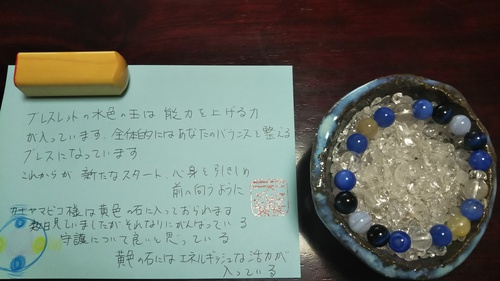 ブレスレットの水色の玉は能力を上げる力
が入っています。全体的にはあなたのバランスを整える
ブレスになっています
これからが新たなスタート、心身を引きしめ
前へ向うように
カミヤマビコ様は黄色の石に入っておられます
数日見ていましたがそれなりにがんばっている
守護について良いと思っている
黄色の石にはエネルギッシュな活力が
入っている